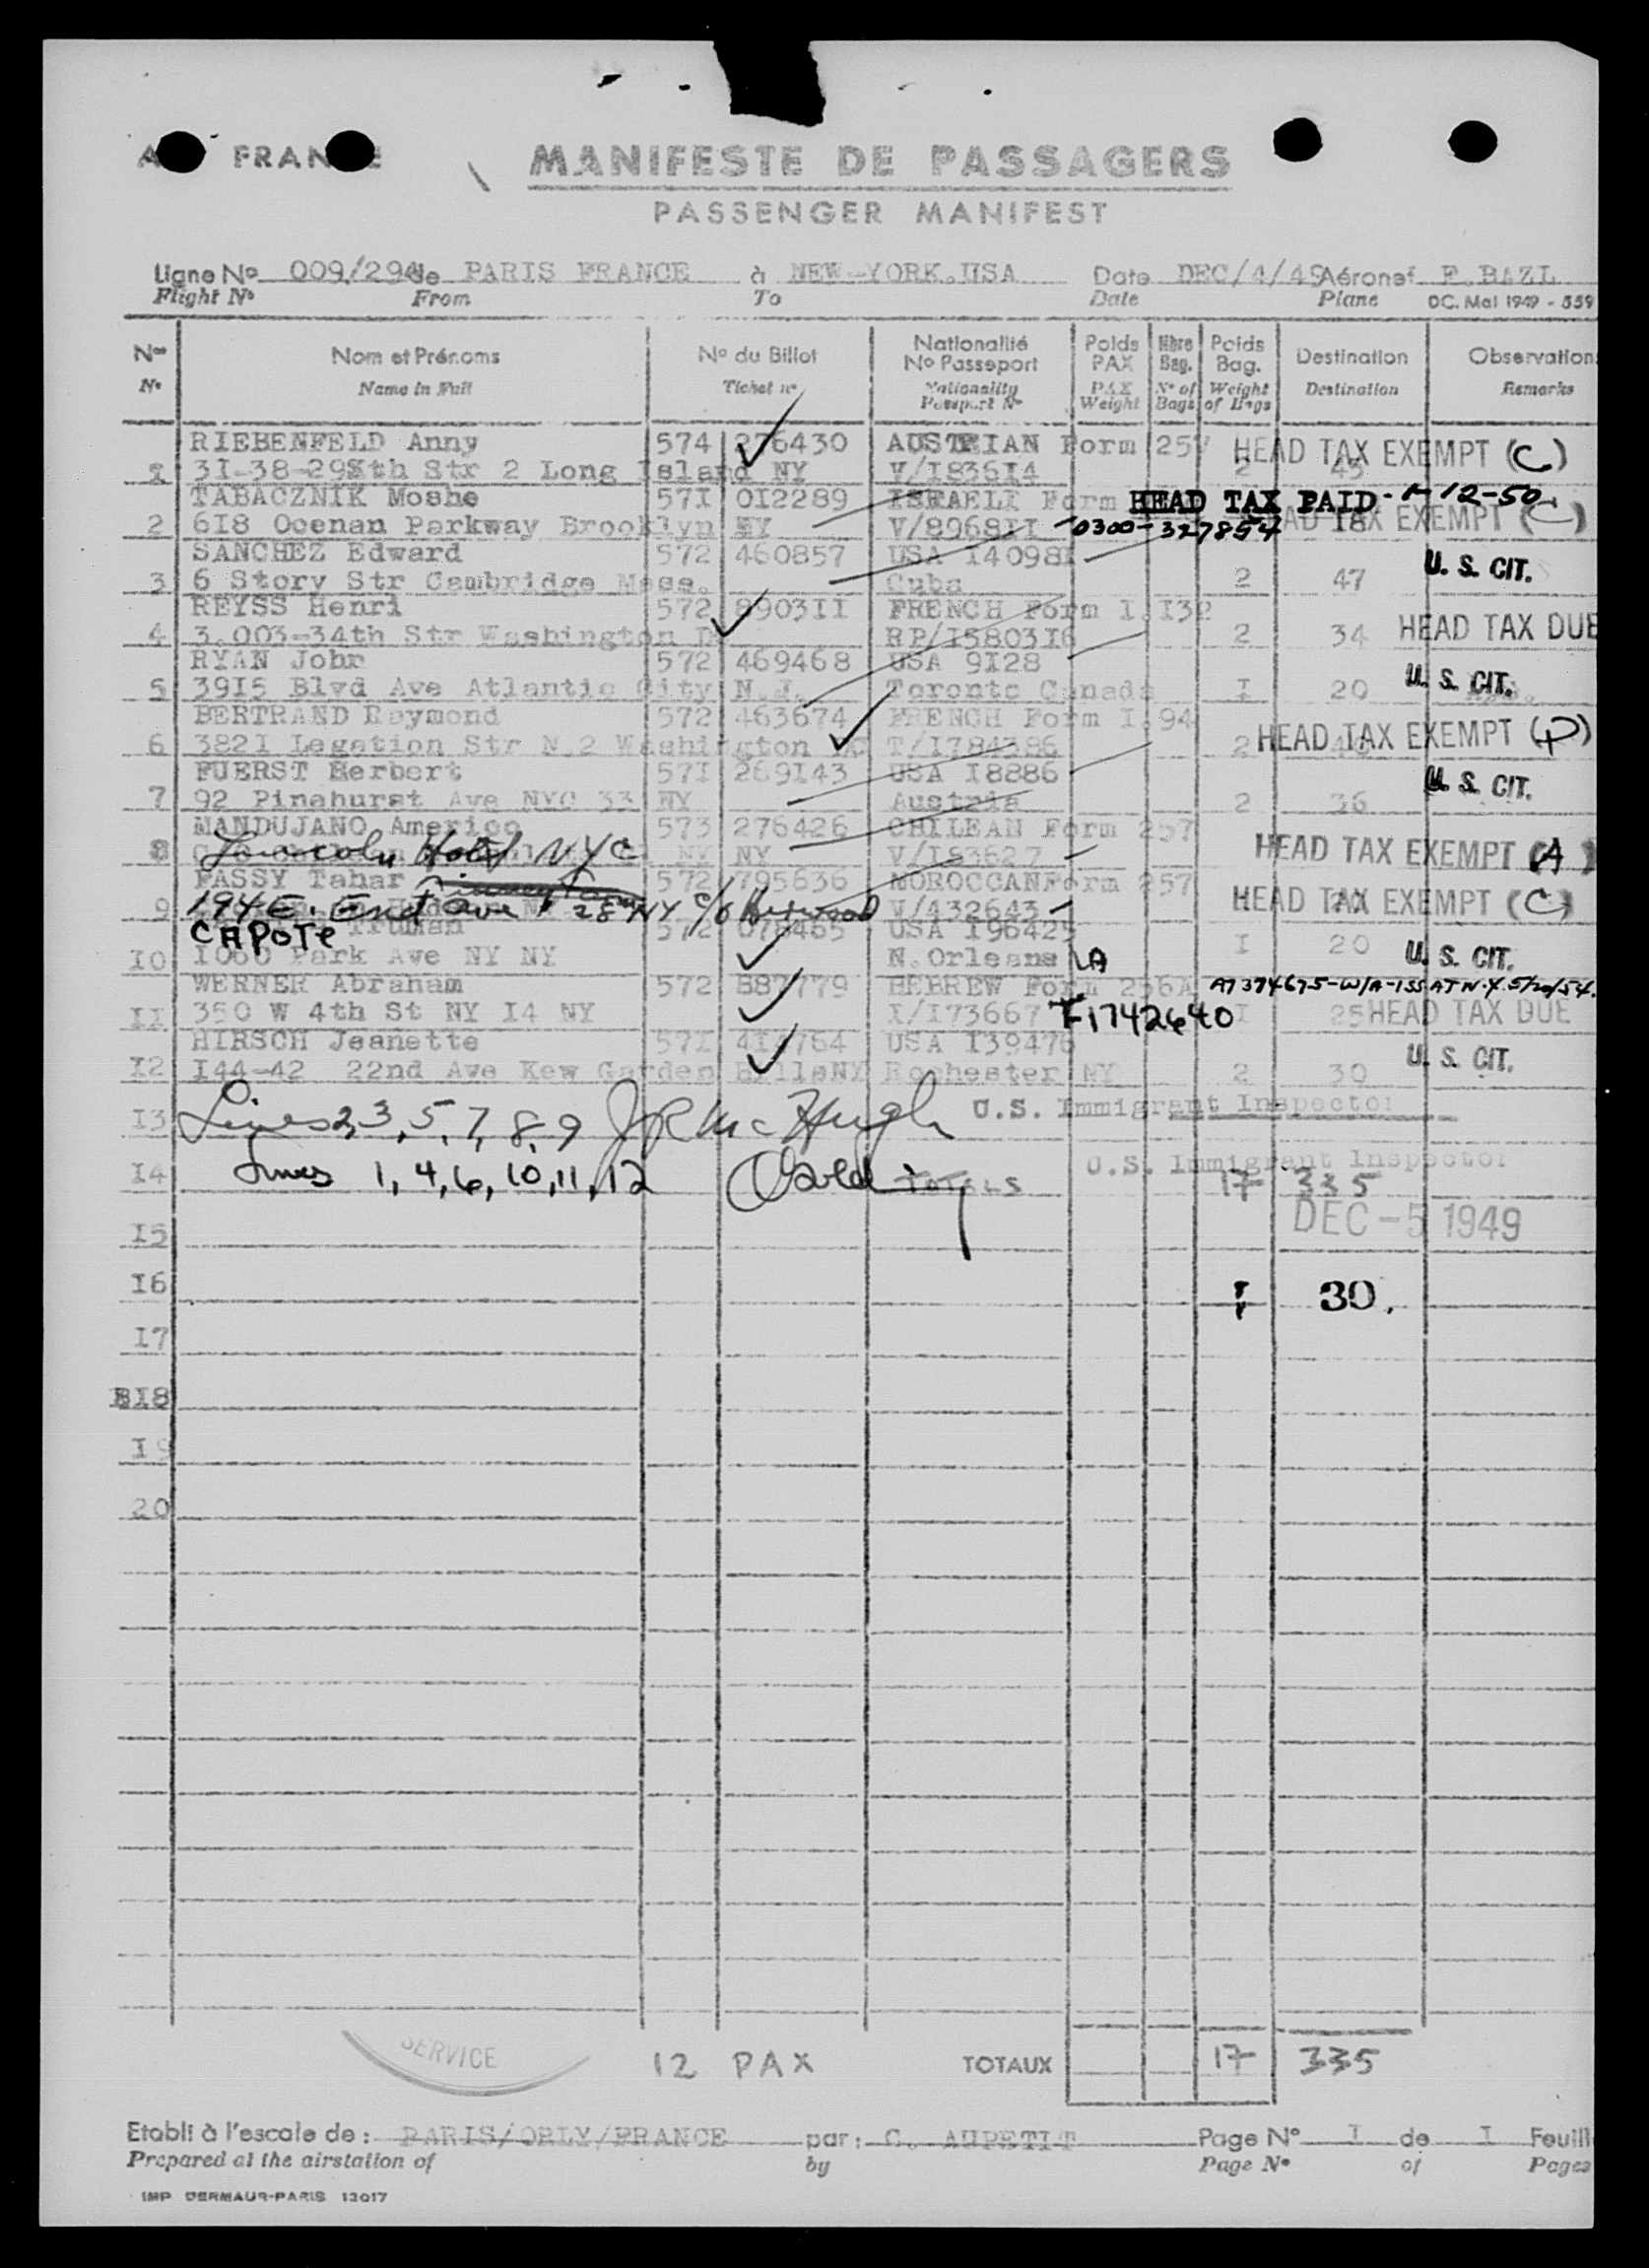 MANIFESTE DE PASSAGERS
PASSENGER MANIFEST
Ligne No 009/294 de PARIS FRANCE à NEW-YORK.USA Date DEC/4/49 Aéronef F.BAZL
Flight No From To Date Plane DC. Mai 1949 - 559
Nos Nom et Prénoms No du Billet Nationalité No Passeport Poids PAX Nbre Bag. Poids Bag. Destination Observation
No Name in Full Ticket no Nationality Passport No PAX Weight No of Bags Weight of Bags Destination Remarks
RIEBENFELD Anny 574 276430 AUSTRIAN Form 257 HEAD TAX EXEMPT (C)
1 31-38-29th Str 2 Long Island NY V/183614 2 45
TABACZNIK Moshe 571 012289 ISRAELI Form HEAD TAX PAID - 1-12-50
2 618 Ocenan Parkway Brooklyn NY V/896811 0300-327854 18 HEAD TAX EXEMPT (C)
SANCHEZ Edward 572 460857 USA 140981 U. S. CIT.
3 6 Story Str Cambridge Mass. Cuba 2 47
REYSS Henri 572 890311 FRENCH Form 1.132 HEAD TAX DUE
4 3.003-34th Str Washington D RP/1580316 2 34
RYAN John 572 469468 USA 9128 U. S. CIT.
5 3915 Blvd Ave Atlantic City N.J. Toronto Canada I 20
BERTRAND Raymond 572 463674 FRENCH Form I.94 HEAD TAX EXEMPT (P)
6 3821 Legation Str N.2 Washington T/1784386 2
FUERST Herbert 571 269143 USA 18886 U. S. CIT.
7 92 Pinehurst Ave NYC 33 NY Austria 2 36
MANDUJANO Americo 573 276426 CHILEAN Form 257
8 Lincoln Hotel NYC NY NY V/183627 HEAD TAX EXEMPT (A)
FASSY Tahar 572 795636 MOROCCAN Form 257 HEAD TAX EXEMPT (C)
9 194 E. End Ave 28 NY c/o V/432643
CAPOTE Truman 572 078465 USA 196425
10 1060 Park Ave NY NY N.Orleans LA I 20 U. S. CIT.
WERNER Abraham 572 887779 HEBREW Form 256A A7374675-W/A-ISS AT N.Y. 5/20/54.
11 350 W 4th St NY 14 NY I/173667 F1742640 I 25 HEAD TAX DUE
HIRSCH Jeanette 571 414764 USA 139476 U. S. CIT.
12 144-42 22nd Ave Kew Garden HillsNY Rochester NY 2 30
13 Lines 2, 3, 5, 7, 8, 9 JR McHugh U.S. Immigrant Inspector
14 Lines 1, 4, 6, 10, 11, 12 TOTALS U.S. Immigrant Inspector 17 335
15 DEC -5 1949
16 30.
17
18
19
20
SERVICE
12 PAX TOTAUX 17 335
Etabli à l'escale de : PARIS/ORLY/FRANCE par : C. AUPETIT Page No I de I Feuill
Prepared at the airstation of by Page No of Pages
IMP DERMAUR-PARIS 13017